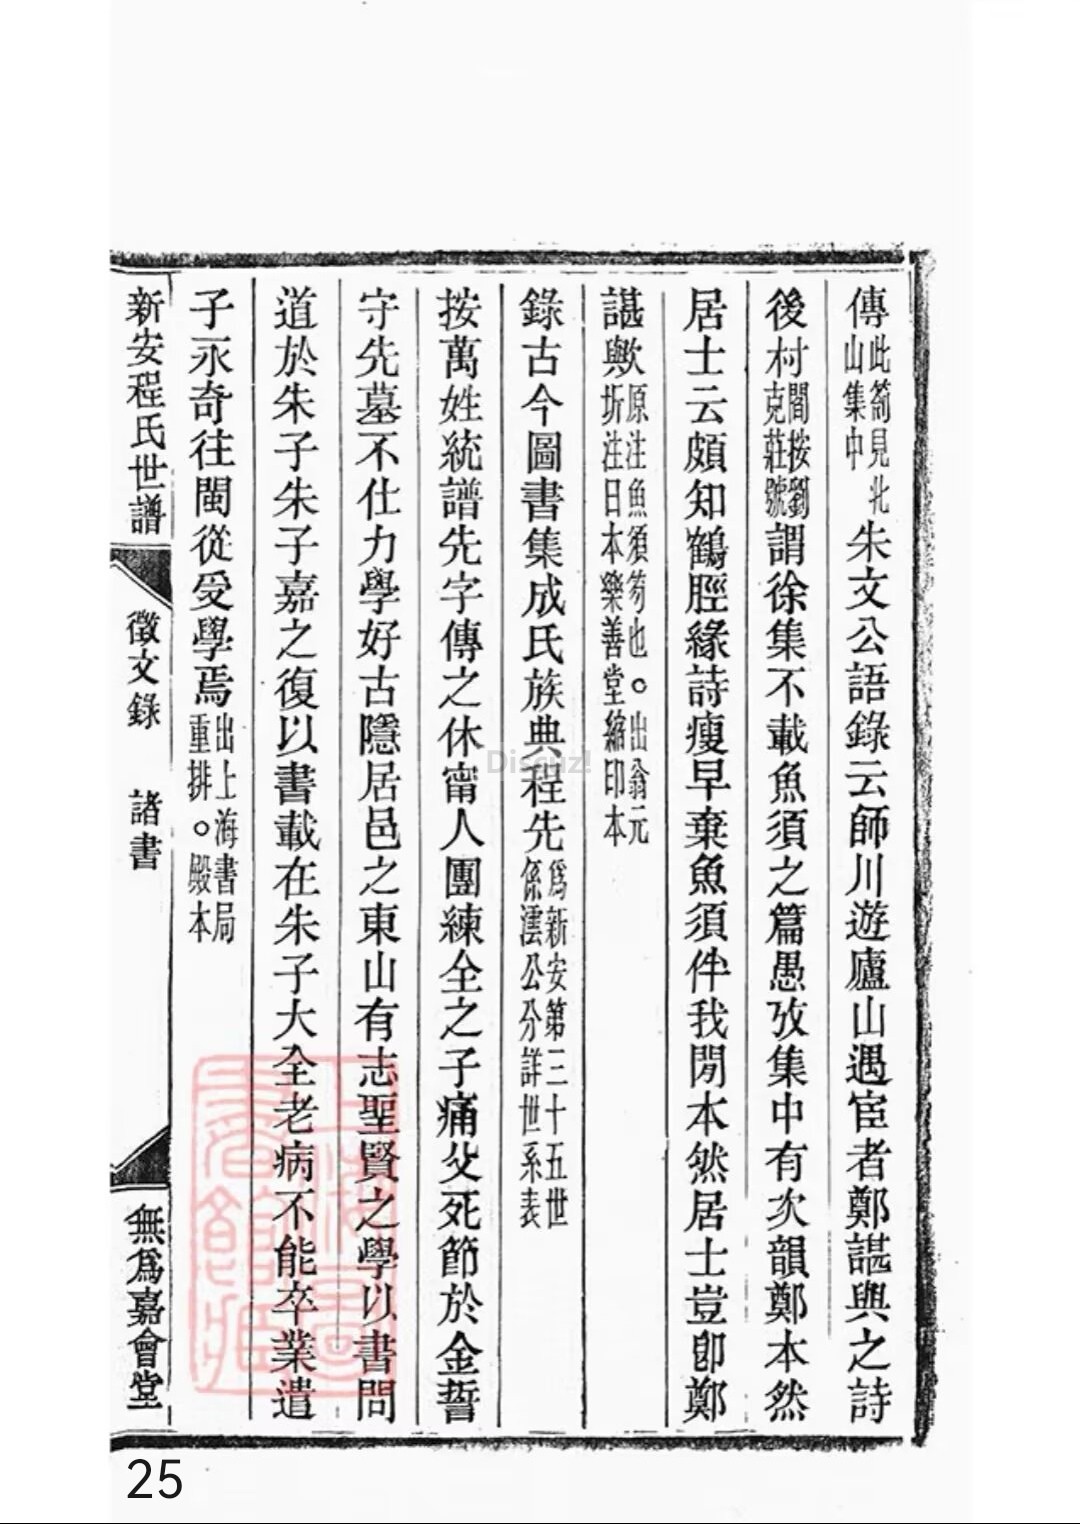 傳此劄見北山集中朱文公語錄云師川遊廬山遇宦者鄭諶與之詩
後村閻按劉克莊號謂徐集不載魚須之篇愚攷集中有次韻鄭本然
居士云頗知鶴脛緣詩瘦早棄魚須伴我閒本然居士豈卽鄭
諶歟原注魚須笏也。出翁元圻注日本樂善堂縮印本
錄古今圖書集成氏族典程先爲新安第三十五世係澐公分詳世系表
按萬姓統譜先字傳之休甯人團練全之子痛父死節於金誓
守先墓不仕力學好古隱居邑之東山有志聖賢之學以書問
道於朱子朱子嘉之復以書載在朱子大全老病不能卒業遣
子永奇往閩從受學焉出上海書局重排。殿本
新安程氏世譜 徵文錄 諸書 無爲嘉會堂
Discuz!
25